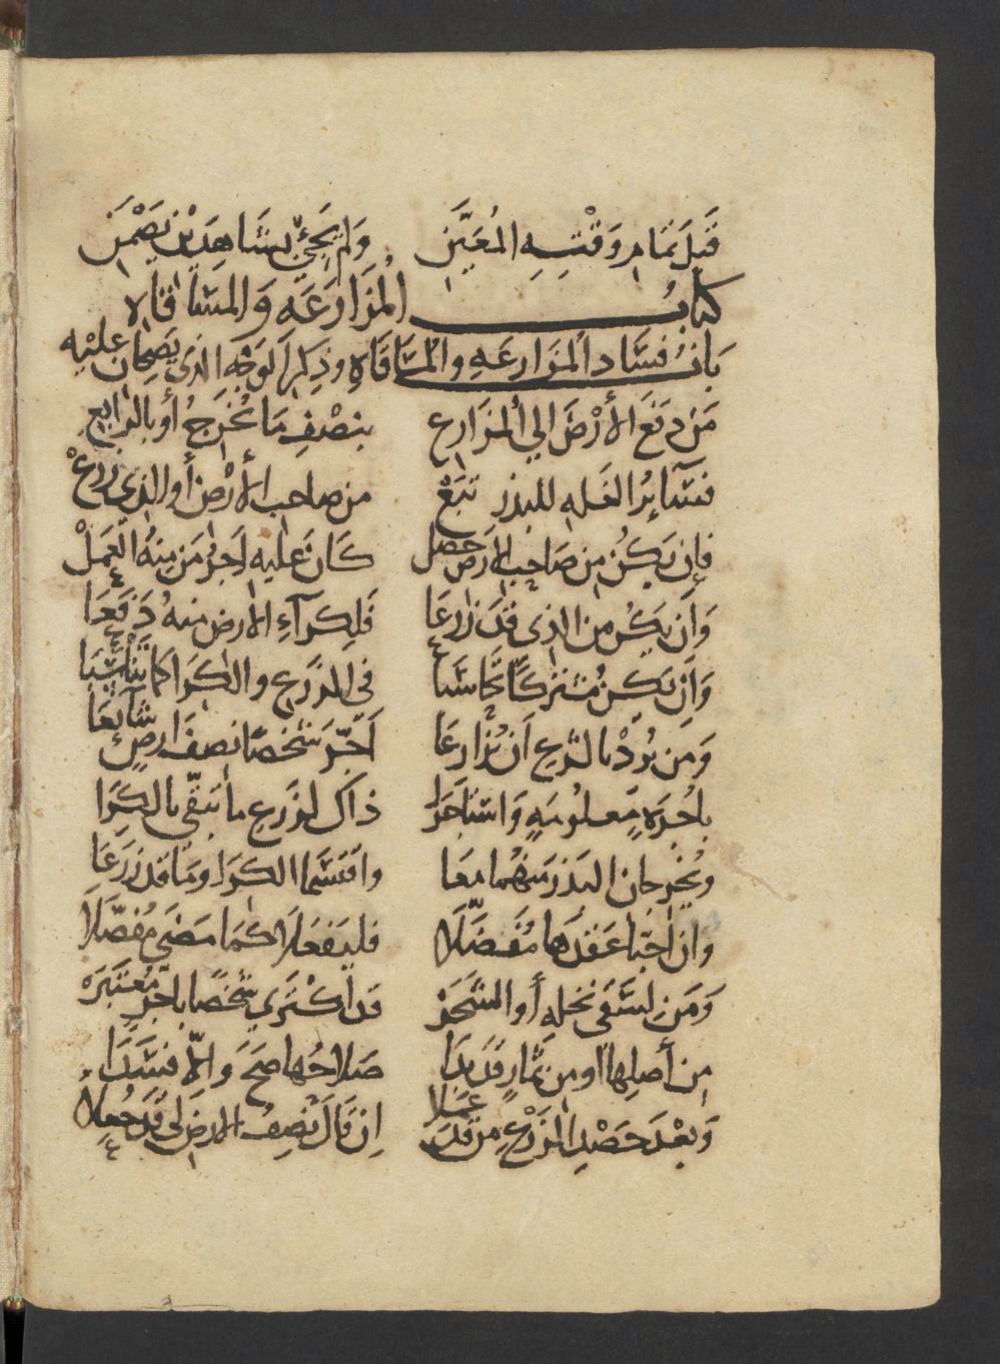 قَبْلَ تمَامِ وَقْتِهِ المُعَيَّنِ وَلم يَجِئْ بشَاهِدَيْنِ يَضْمَنِ
كتابُ المُزَارَعَه وَالمسَاقاه
بَابُ فسَاد المزَارعَهِ والمسَاقاةِ وذِكر الوَجْه الذي يَصِحان عليْه
مَن دَفَعَ الأرْضَ الي المزَارِع بنصْفِ مَا تُخرِجُ أو بالرابِعِ
فسَآئرُ الغله للبذر تبَعْ من صاحب الأرْض أو الذي زرَعْ
فإن يَكُنْ من صَاحب الارض حصل كَانَ عليه اَجرُ مَن مِنهُ العَمَلْ
وَان يكُن من الذي قدْ زرَعَا فَلِكرَآءِ الارض منه دَفَعَا
وَإن يكن مُشتركًا تحَاسَبَا في الزرَعِ والكرَا كما تَنَاسَبَا
وَمن يُرِدْ بالشرعِ اَن يُزارِعَا اَجَّرَ شخصًا نصفَ ارضٍ شَآئِعَا
باُجرَةٍ مَعلومَةٍ وَاستاجَرَا ذاك لزرعِ ما تبقّي بالكِرَا
ويُخرِجان البَذرَ منهُما مَعا واقتسَما الكرَا وَمَا قد زرَعَا
وان اَحَبّا عَقدَها مُفَضَّلَا فليَفعَلَا كمَا مَضَي مُفصَّلَا
وَمَنِ استَسقَي نخلهِ أو الشَجَرْ قد اكْتري شخصًا باجرٍ مُعْتبَرَهْ
مِن أصلِها او مِن ثمارٍ قد بَدَا صَلاحُها صَحَ وَالّا فسَدَا
وَبعْدَ حَصْدِ الزرْعِ من قد عَملا اِن قالَ نصِفُ الارضِ لي قد جُعِلا